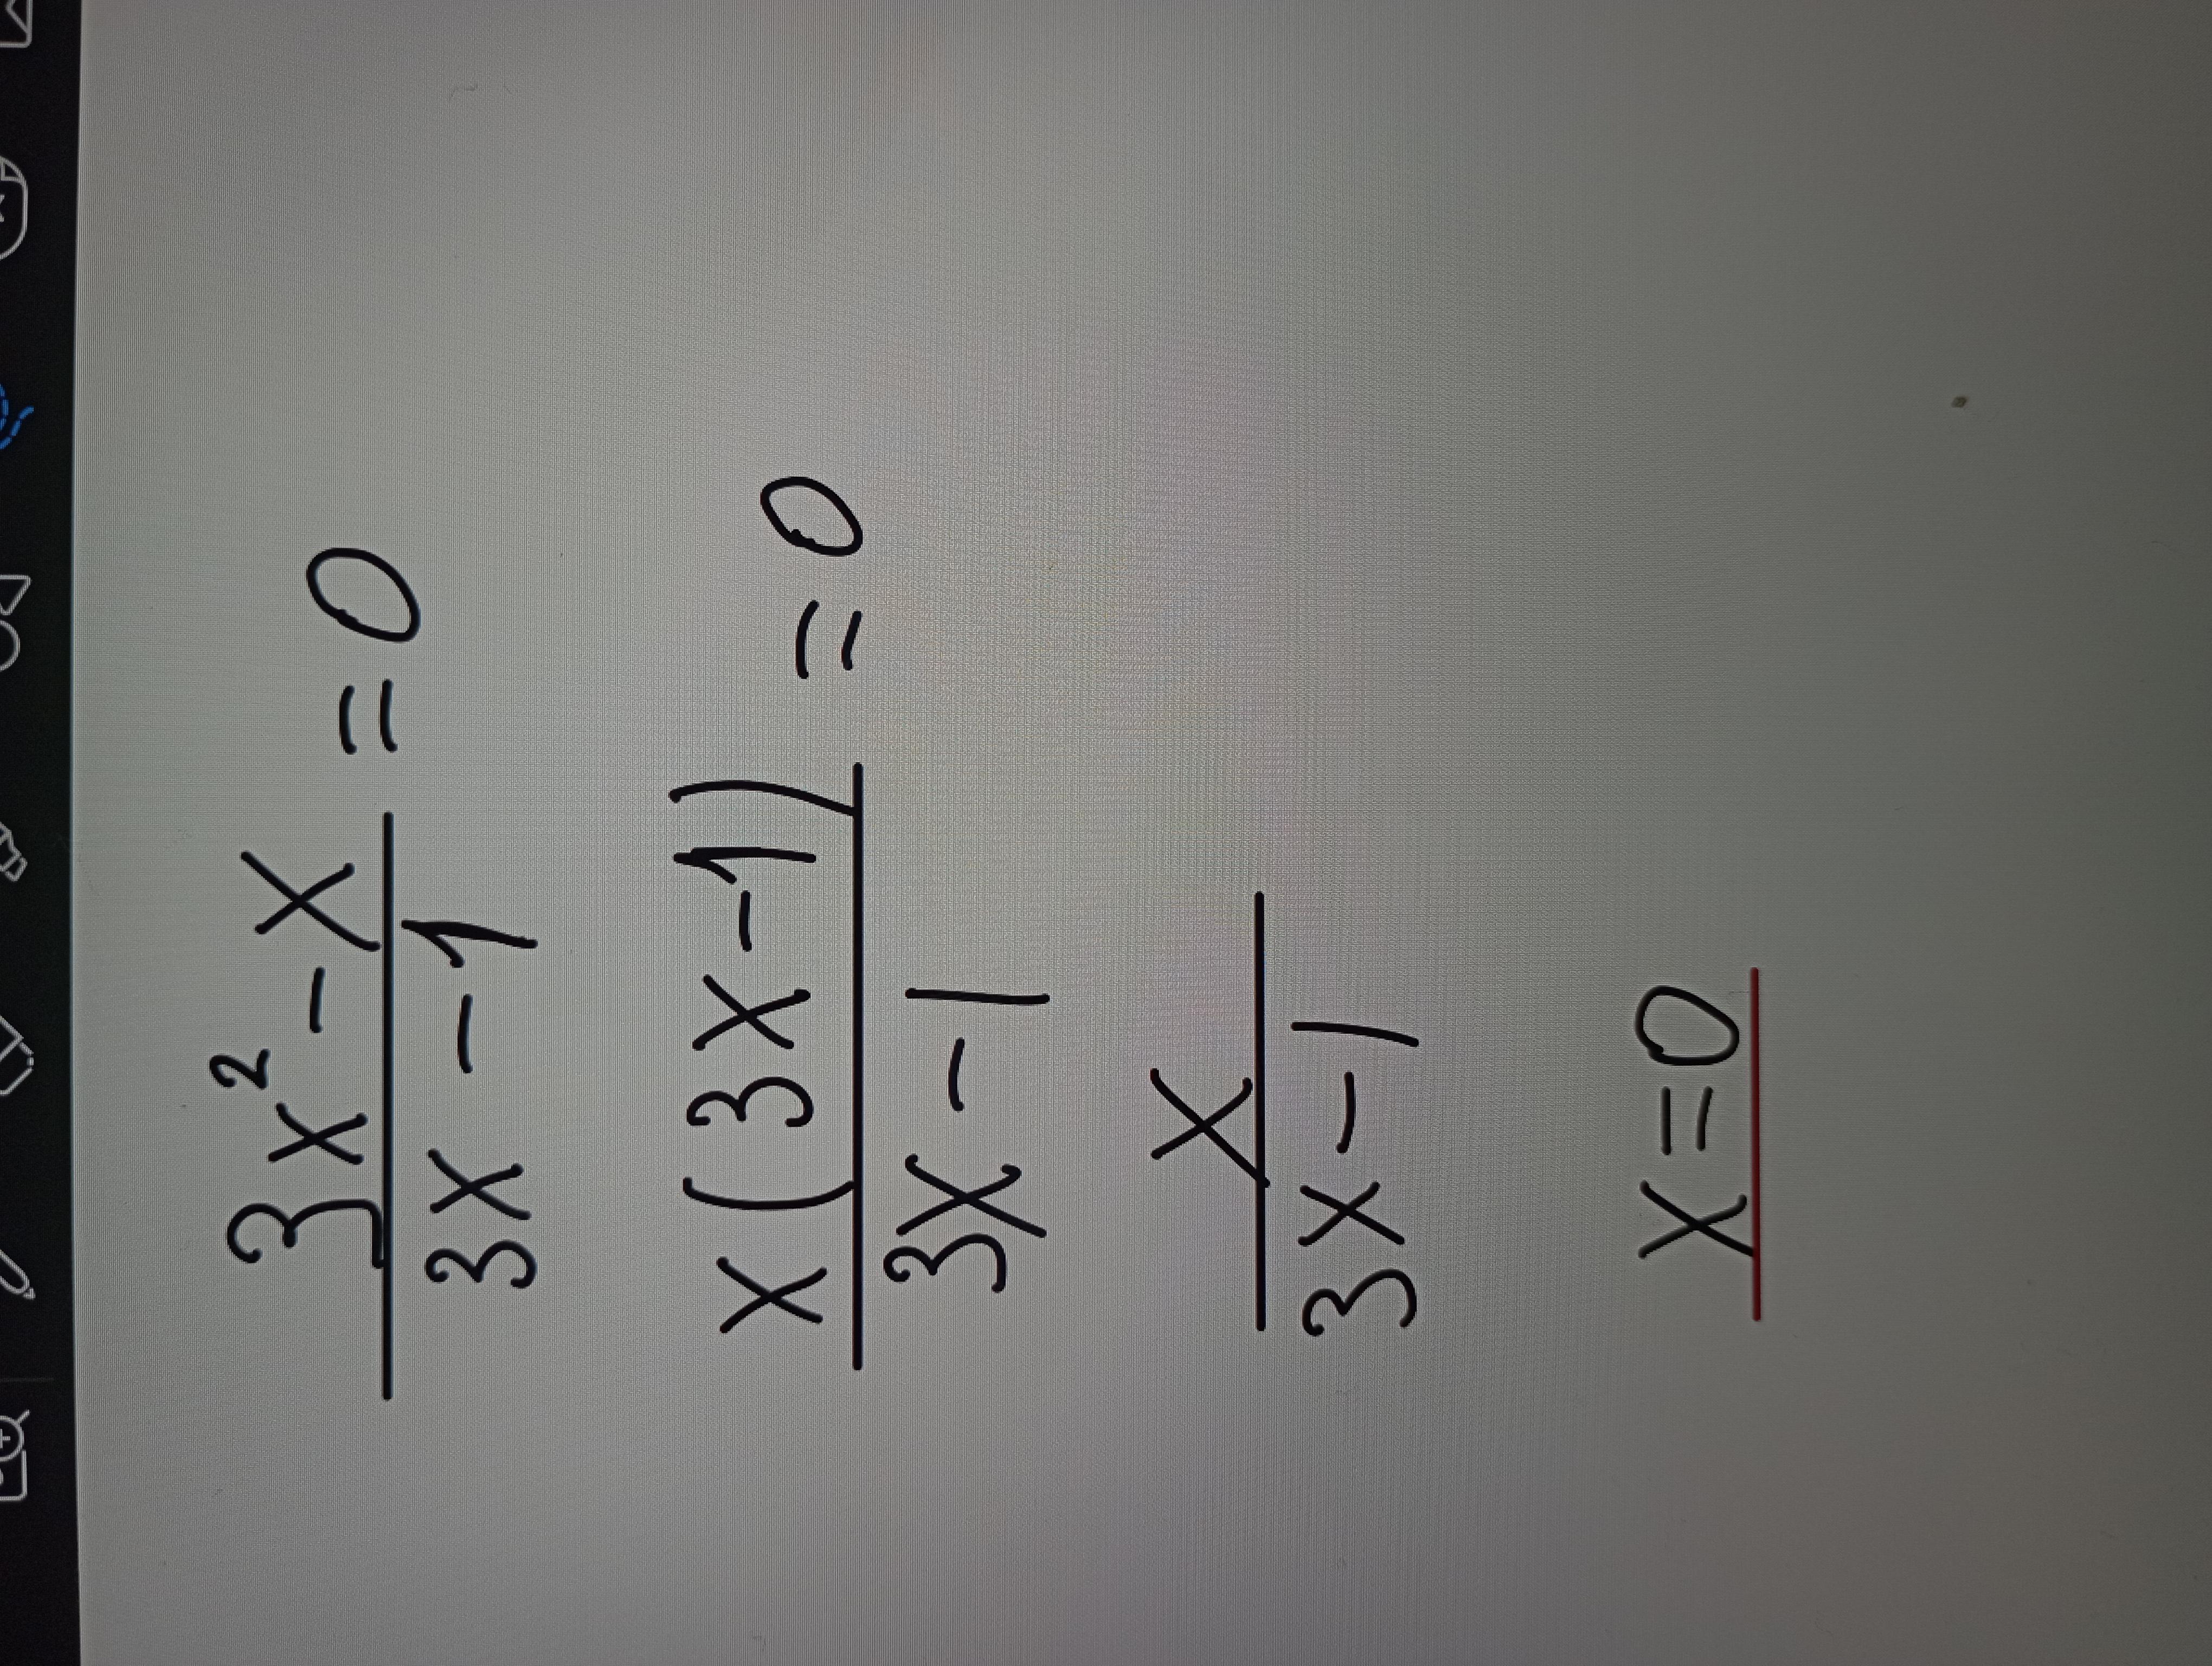 3x² - x / 3x - 1 = 0
x(3x - 1) / 3x - 1 = 0
x / 3x - 1
x = 0